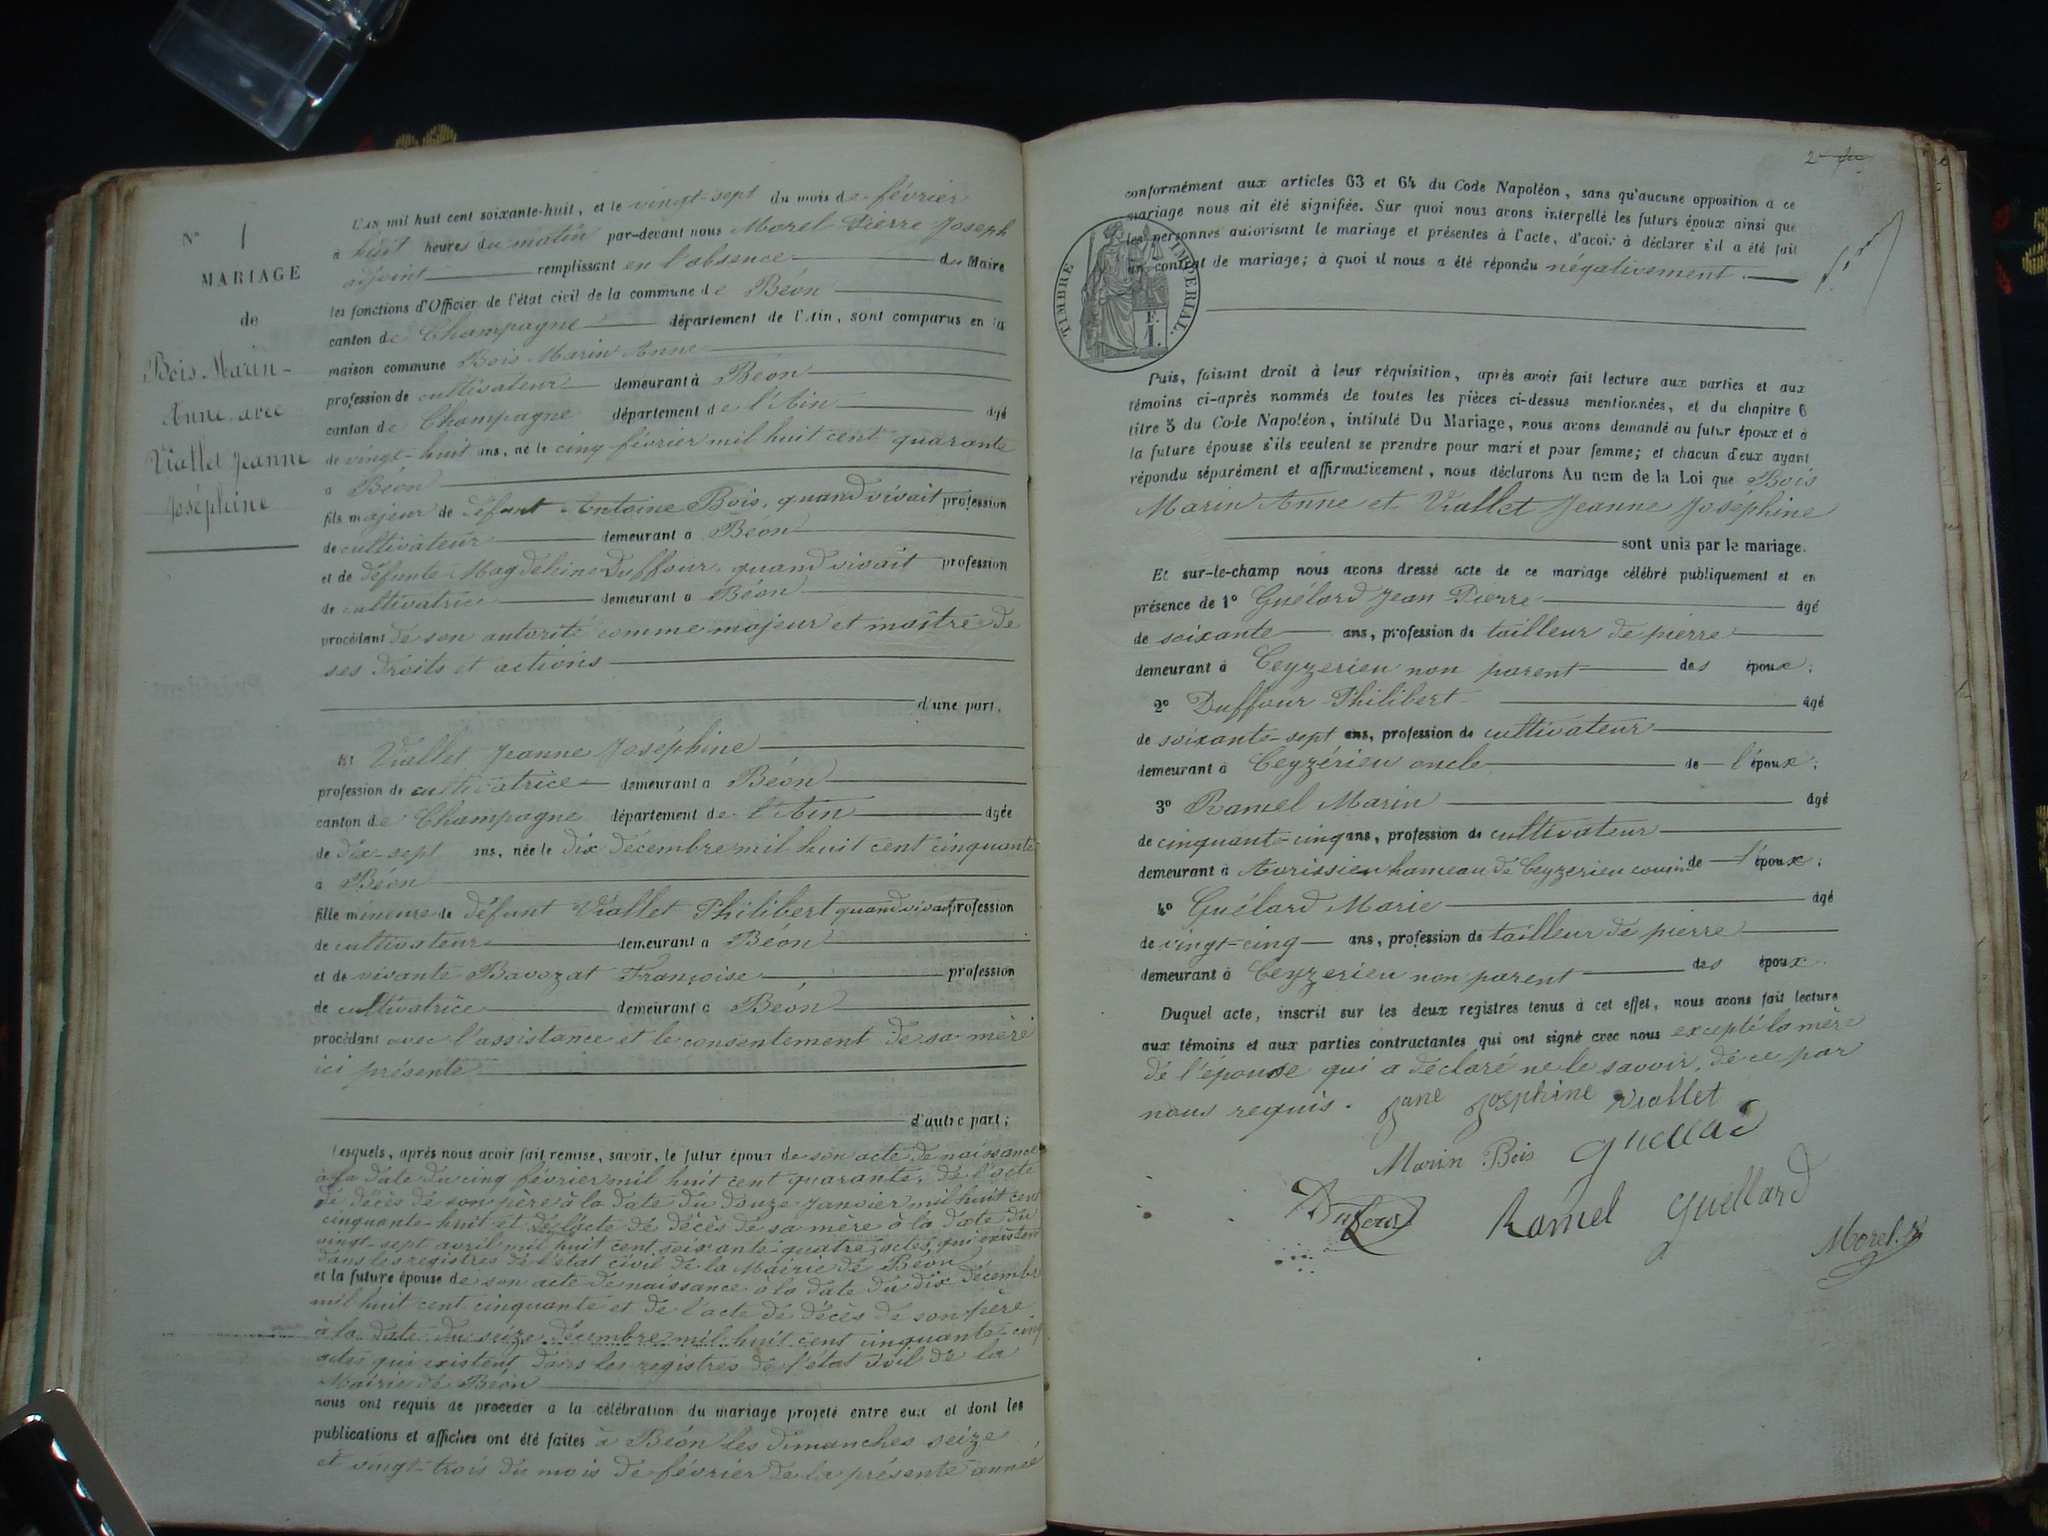 N° 1
MARIAGE
de
Bois Marin-
Anne avec
Viallet Jeanne
Joséphine
L'AN mil huit cent soixante-huit, et le vingt-sept du mois de février
à huit heures du matin par-devant nous Morel Pierre Joseph
adjoint remplissant en l'absence du Maire
les fonctions d'Officier de l'état civil de la commune de Béon
canton de Champagne département de l'Ain, sont comparus en la
maison commune Bois Marin Anne
profession de cultivateur demeurant à Béon
canton de Champagne département de l'Ain âgé
de vingt-huit ans, né le cinq février mil huit cent quarante
à Béon
fils majeur de défunt Antoine Bois, quand vivait profession
de cultivateur demeurant à Béon
et de défunte Magdeleine Duffour quand vivait profession
de cultivatrice demeurant à Béon
procédant de son autorité comme majeur et maître de
ses droits et actions
d'une part,
Et Viallet Jeanne Joséphine
profession de cultivatrice demeurant à Béon
canton de Champagne département de l'Ain âgée
de dix-sept ans, née le dix décembre mil huit cent cinquante
à Béon
fille mineure de défunt Viallet Philibert quand vivait profession
de cultivateur demeurant à Béon
et de vivante Bavozat Françoise profession
de cultivatrice demeurant à Béon
procédant avec l'assistance et le consentement de sa mère
ici présente
d'autre part;
Lesquels, après nous avoir fait remise, savoir, le futur époux de son acte de naissance
à la date du cinq février mil huit cent quarante, de l'acte
de décès de son père à la date du douze janvier mil huit cent
cinquante-huit et de l'acte de décès de sa mère à la date du
vingt-sept avril mil huit cent soixante-quatre, actes qui existent
dans les registres de l'état civil de la Mairie de Béon
et la future épouse de son acte de naissance à la date du dix décembre
mil huit cent cinquante et de l'acte de décès de son père
à la date du seize décembre mil huit cent cinquante-cinq
actes qui existent dans les registres de l'état civil de la
Mairie de Béon
nous ont requis de procéder à la célébration du mariage projeté entre eux et dont les
publications et affiches ont été faites à Béon les dimanches seize
et vingt-trois du mois de février de la présente année
2
conformément aux articles 63 et 64 du Code Napoléon, sans qu'aucune opposition à ce
mariage nous ait été signifiée. Sur quoi nous avons interpellé les futurs époux ainsi que
les personnes autorisant le mariage et présentes à l'acte, d'avoir à déclarer s'il a été fait
un contrat de mariage; à quoi il nous a été répondu négativement.
TIMBRE IMPÉRIAL.
F.
1.
Puis, faisant droit à leur réquisition, après avoir fait lecture aux parties et aux
témoins ci-après nommés de toutes les pièces ci-dessus mentionnées, et du chapitre 6
titre 5 du Code Napoléon, intitulé Du Mariage, nous avons demandé au futur époux et à
la future épouse s'ils veulent se prendre pour mari et pour femme; et chacun d'eux ayant
répondu séparément et affirmativement, nous déclarons Au nom de la Loi que Bois
Marin Anne et Viallet Jeanne Joséphine
sont unis par le mariage.
Et sur-le-champ nous avons dressé acte de ce mariage célébré publiquement et en
présence de 1° Guélard Jean Pierre âgé
de soixante ans, profession de tailleur de pierre
demeurant à Ceyzerieu non parent des époux;
2° Duffour Philibert âgé
de soixante-sept ans, profession de cultivateur
demeurant à Ceyzérieu oncle de l'époux;
3° Ramel Marin âgé
de cinquant-cinq ans, profession de cultivateur
demeurant à Avrissieu hameau de Ceyzerieu cousin de l'époux;
4° Guélard Marie âgé
de vingt-cinq ans, profession de tailleur de pierre
demeurant à Ceyzerieu non parent des époux.
Duquel acte, inscrit sur les deux registres tenus à cet effet, nous avons fait lecture
aux témoins et aux parties contractantes qui ont signé avec nous excepté la mère
de l'épouse qui a déclaré ne le savoir, de ce par
nous requis. Jane Josphine Viallet
Marin Bois Guellad
Dufour Ramel Guellard
Morel